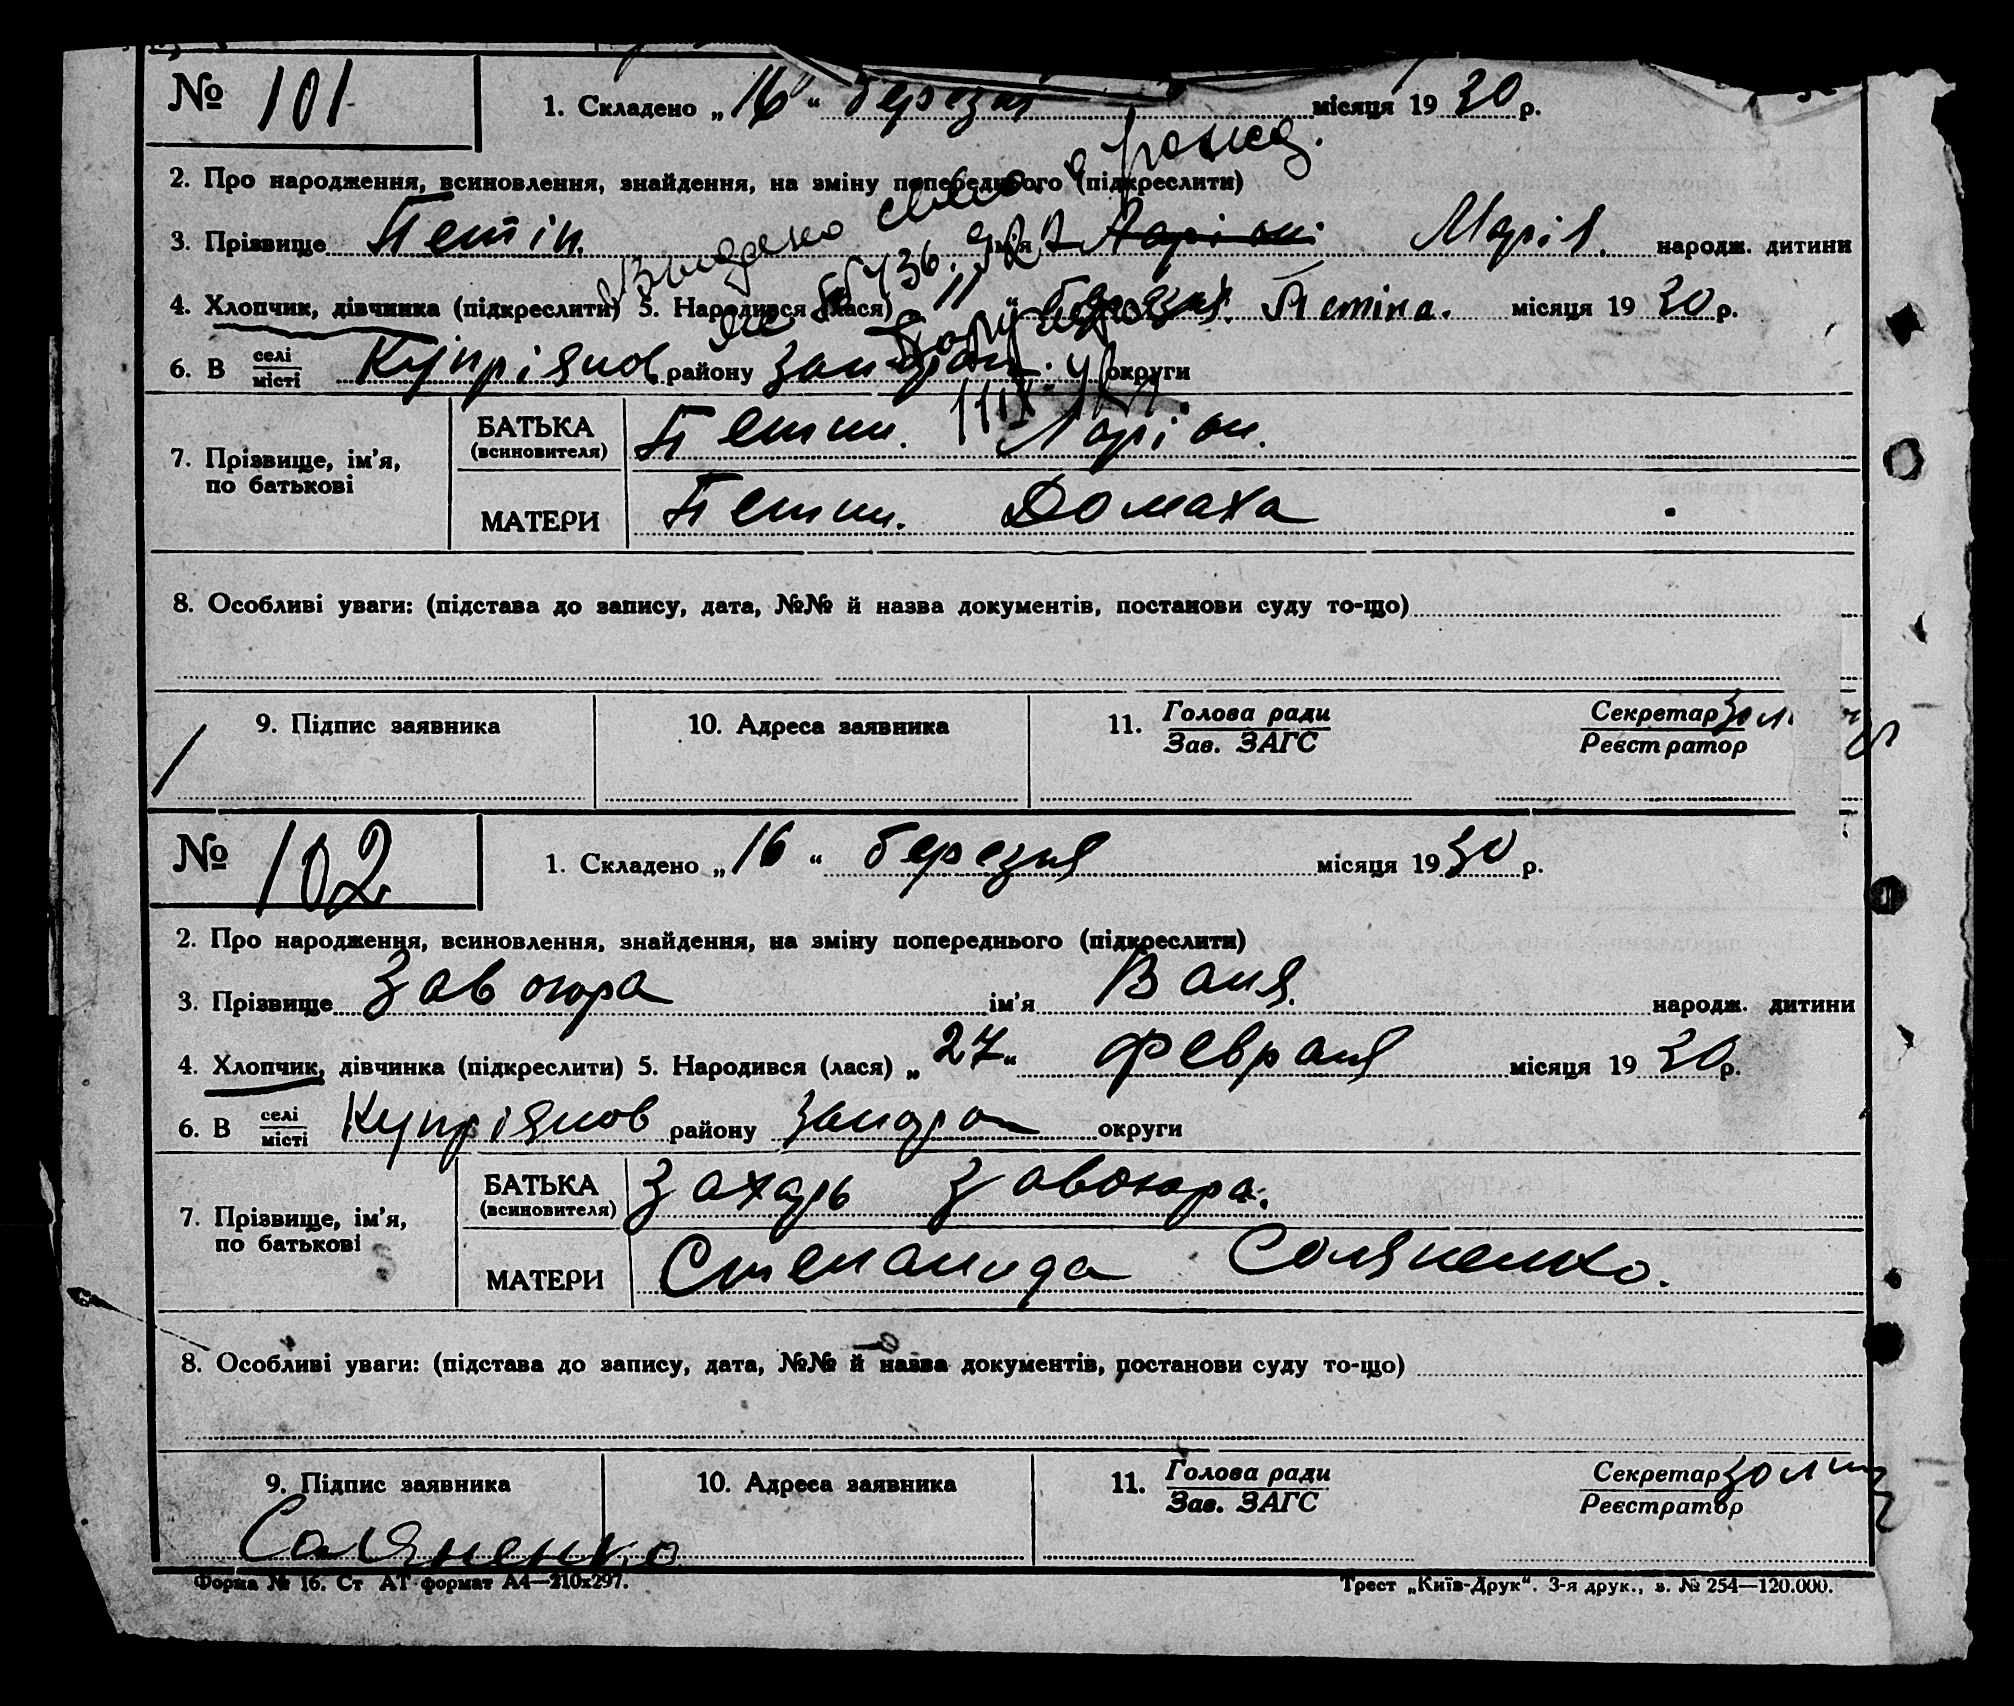 № 101
1. Складено „16“ березня місяця 1930 р.
2. Про народження, всиновлення, знайдення, на зміну попереднього (підкреслити)
3. Прізвище Петін. ім'я Марія. народж. дитини
4. Хлопчик, дівчинка (підкреслити) 5. Народився (лася) „11“ березня місяця 1930 р.
Петіна.
Выдано
6. В селі/місті Купріянов району Запорож. округи
7. Прізвище, ім'я, по батькові
БАТЬКА (всиновителя) Петин. Ларіон.
МАТЕРИ Петин. Домаха
8. Особливі уваги: (підстава до запису, дата, №№ й назва документів, постанови суду то-що)
9. Підпис заявника
10. Адреса заявника
11. Голова ради / Зав. ЗАГС
Секретар / Реєстратор
№ 102
1. Складено „16“ березня місяця 1930 р.
2. Про народження, всиновлення, знайдення, на зміну попереднього (підкреслити)
3. Прізвище Завоюра ім'я Ваня. народж. дитини
4. Хлопчик, дівчинка (підкреслити) 5. Народився (лася) „27“ февраля місяця 1930 р.
6. В селі/місті Купріянов району округи
7. Прізвище, ім'я, по батькові
БАТЬКА (всиновителя) Захарь Завоюра.
МАТЕРИ Степанида Соляненко.
8. Особливі уваги: (підстава до запису, дата, №№ й назва документів, постанови суду то-що)
9. Підпис заявника
10. Адреса заявника
11. Голова ради / Зав. ЗАГС
Секретар / Реєстратор
Соляненко
Форма № 16. Ст АТ формат А4—210х297.
Трест „Київ-Друк“. 3-я друк., з. № 254—120.000.